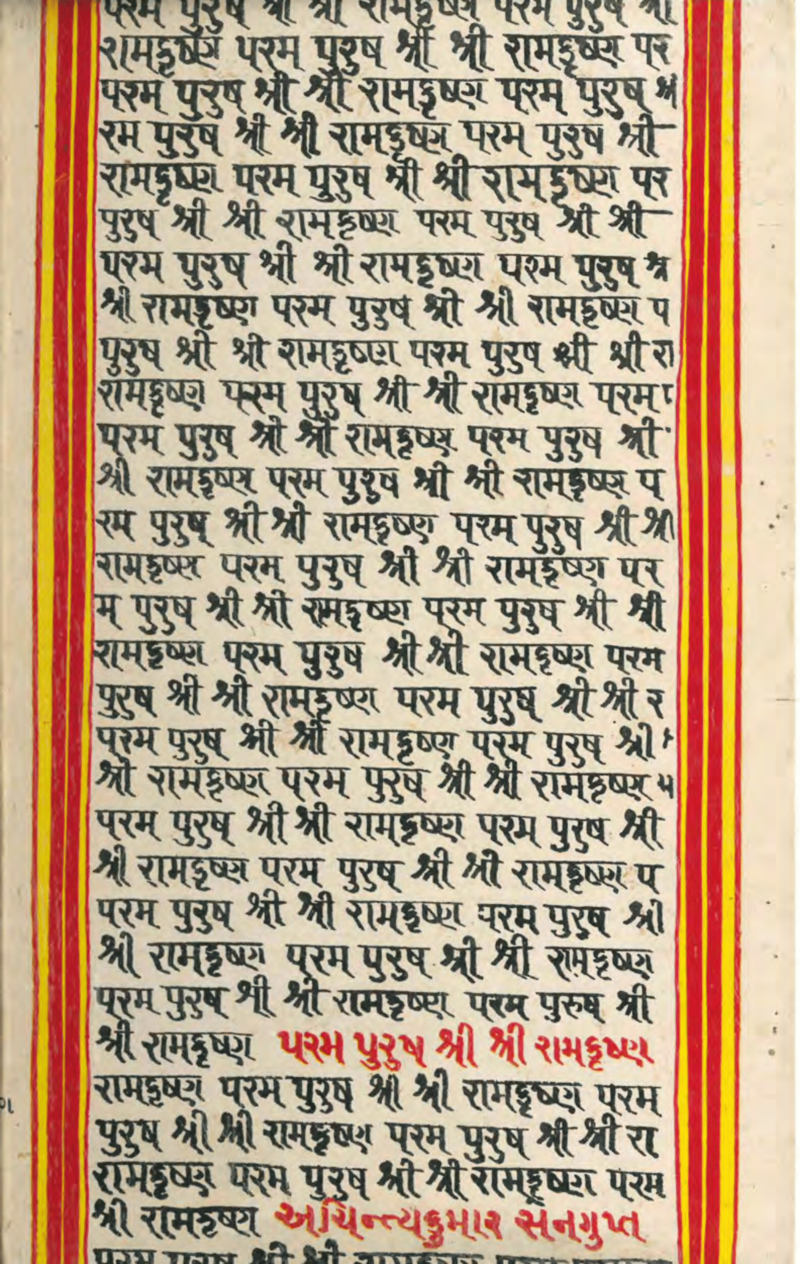 परम पुरुष श्री श्री रामकृष्ण परम पुरुष श्री
रामकृष्ण परम पुरुष श्री श्री रामकृष्ण पर
परम पुरुष श्री श्री रामकृष्ण परम पुरुष श्री
रम पुरुष श्री श्री रामकृष्ण परम पुरुष श्री
रामकृष्ण परम पुरुष श्री श्री रामकृष्ण पर
पुरुष श्री श्री रामकृष्ण परम पुरुष श्री श्री
परम पुरुष श्री श्री रामकृष्ण परम पुरुष श्र
श्री रामकृष्ण परम पुरुष श्री श्री रामकृष्ण प
पुरुष श्री श्री रामकृष्ण परम पुरुष श्री श्री रा
रामकृष्ण परम पुरुष श्री श्री रामकृष्ण परम
परम पुरुष श्री श्री रामकृष्ण परम पुरुष श्री
श्री रामकृष्ण परम पुरुष श्री श्री रामकृष्ण प
रम पुरुष श्री श्री रामकृष्ण परम पुरुष श्री श्री
रामकृष्ण परम पुरुष श्री श्री रामकृष्ण पर
म पुरुष श्री श्री रामकृष्ण परम पुरुष श्री श्री
रामकृष्ण परम पुरुष श्री श्री रामकृष्ण परम
पुरुष श्री श्री रामकृष्ण परम पुरुष श्री श्री र
परम पुरुष श्री श्री रामकृष्ण परम पुरुष श्री
श्री रामकृष्ण परम पुरुष श्री श्री रामकृष्ण प
परम पुरुष श्री श्री रामकृष्ण परम पुरुष श्री
श्री रामकृष्ण परम पुरुष श्री श्री रामकृष्ण प
परम पुरुष श्री श्री रामकृष्ण परम पुरुष श्री
श्री रामकृष्ण परम पुरुष श्री श्री रामकृष्ण
परम पुरुष श्री श्री रामकृष्ण परम पुरुष श्री
श्री रामकृष्ण પરમ પુરુષ શ્રી શ્રી રામકૃષ્ણ
रामकृष्ण परम पुरुष श्री श्री रामकृष्ण परम
पुरुष श्री श्री रामकृष्ण परम पुरुष श्री श्री रा
रामकृष्ण परम पुरुष श्री श्री रामकृष्ण परम
श्री रामकृष्ण અચિન્ત્યકુમાર સેનગુપ્ત
परम पुरुष श्री श्री रामकृष्ण